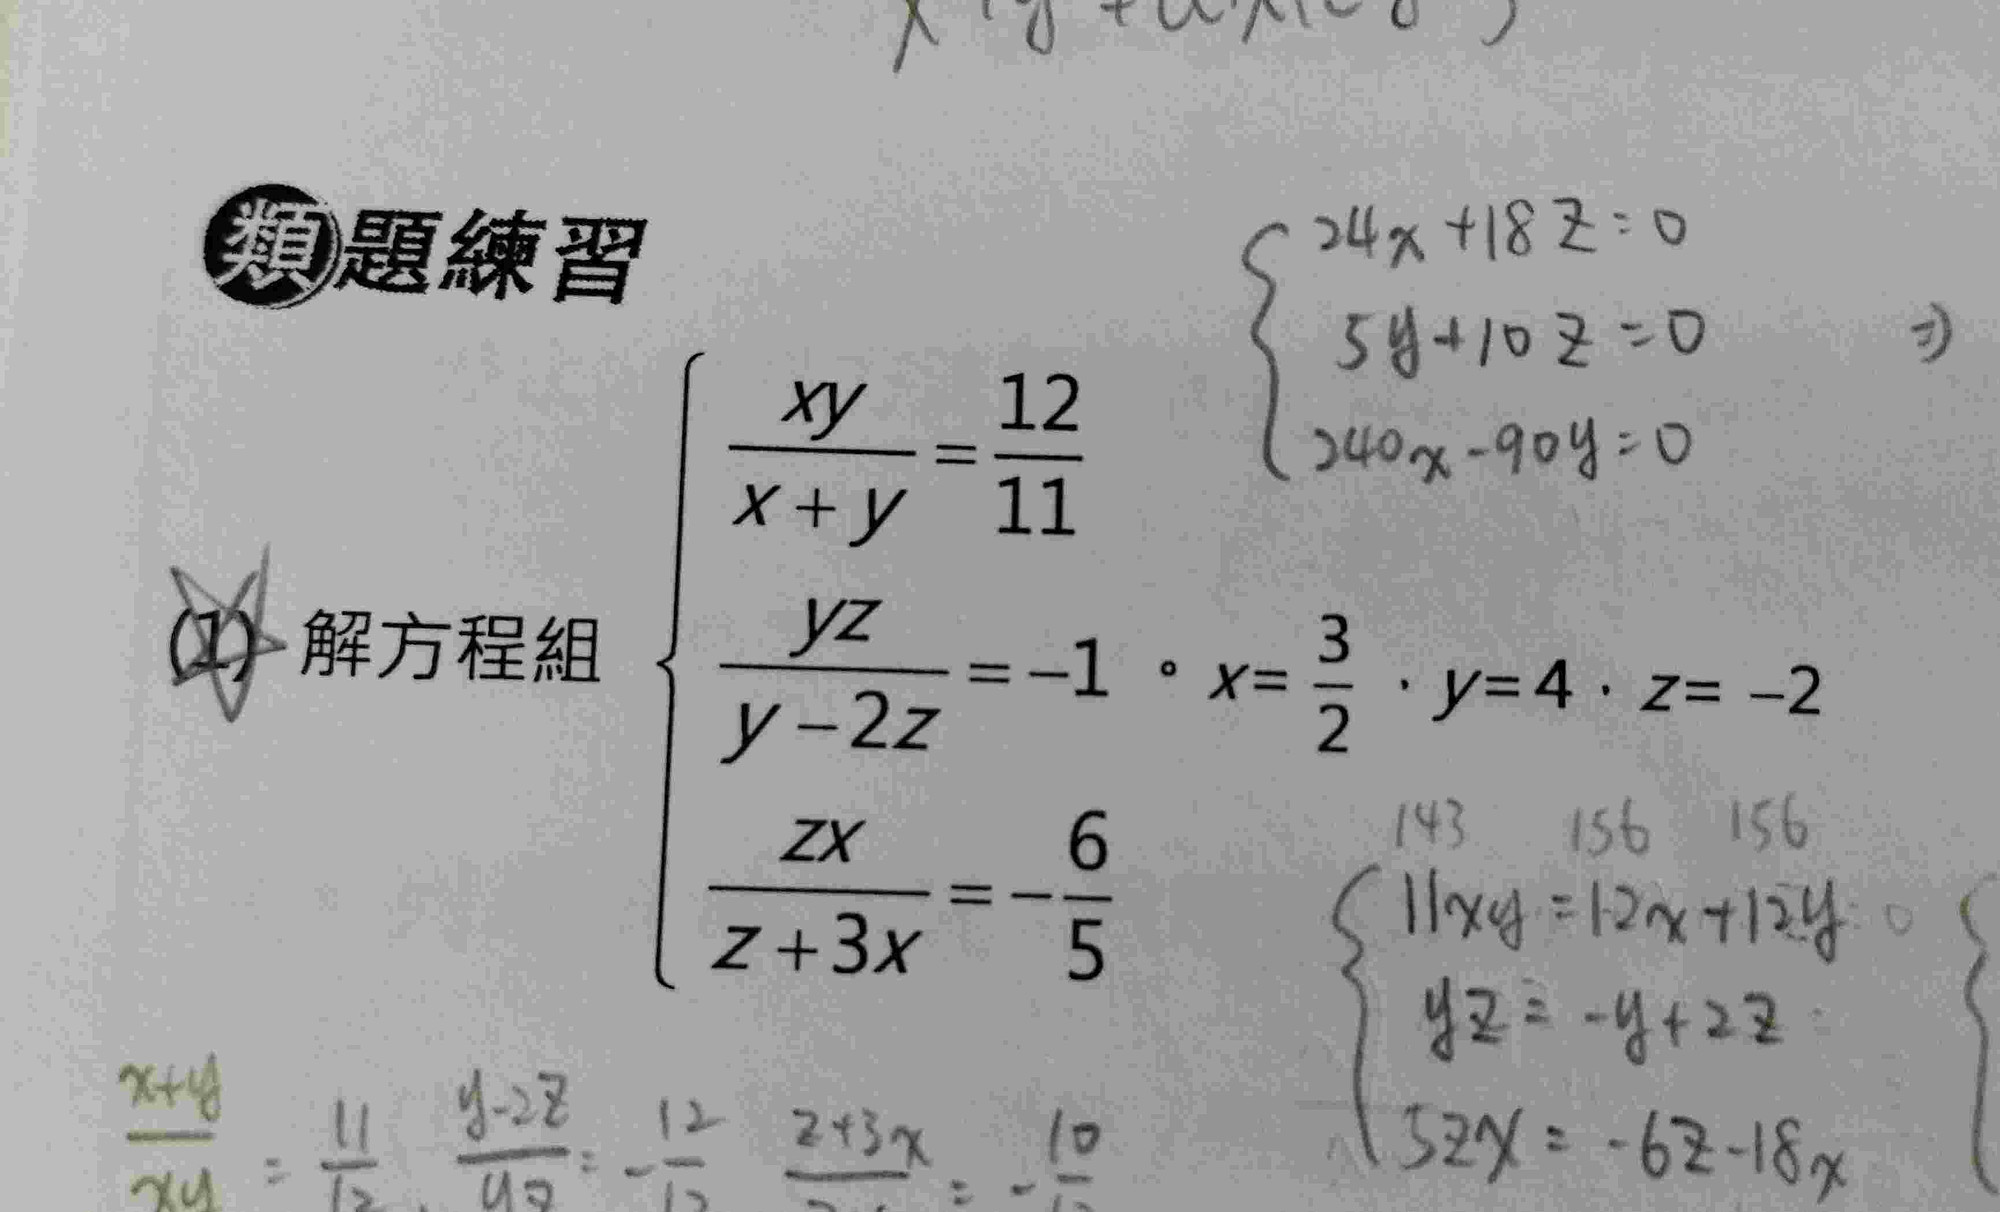 類題練習
24x+18z=0
5y+10z=0 ⇒
240x-90y=0
(1) 解方程組
xy/(x+y) = 12/11
yz/(y-2z) = -1 。 x= 3/2 · y=4 · z= -2
zx/(z+3x) = -6/5
143 156 156
11xy=12x+12y
yz=-y+2z
5zx=-6z-18x
(x+y)/xy = 11/12 , (y-2z)/yz = -12/12 (z+3x)/ = -10/